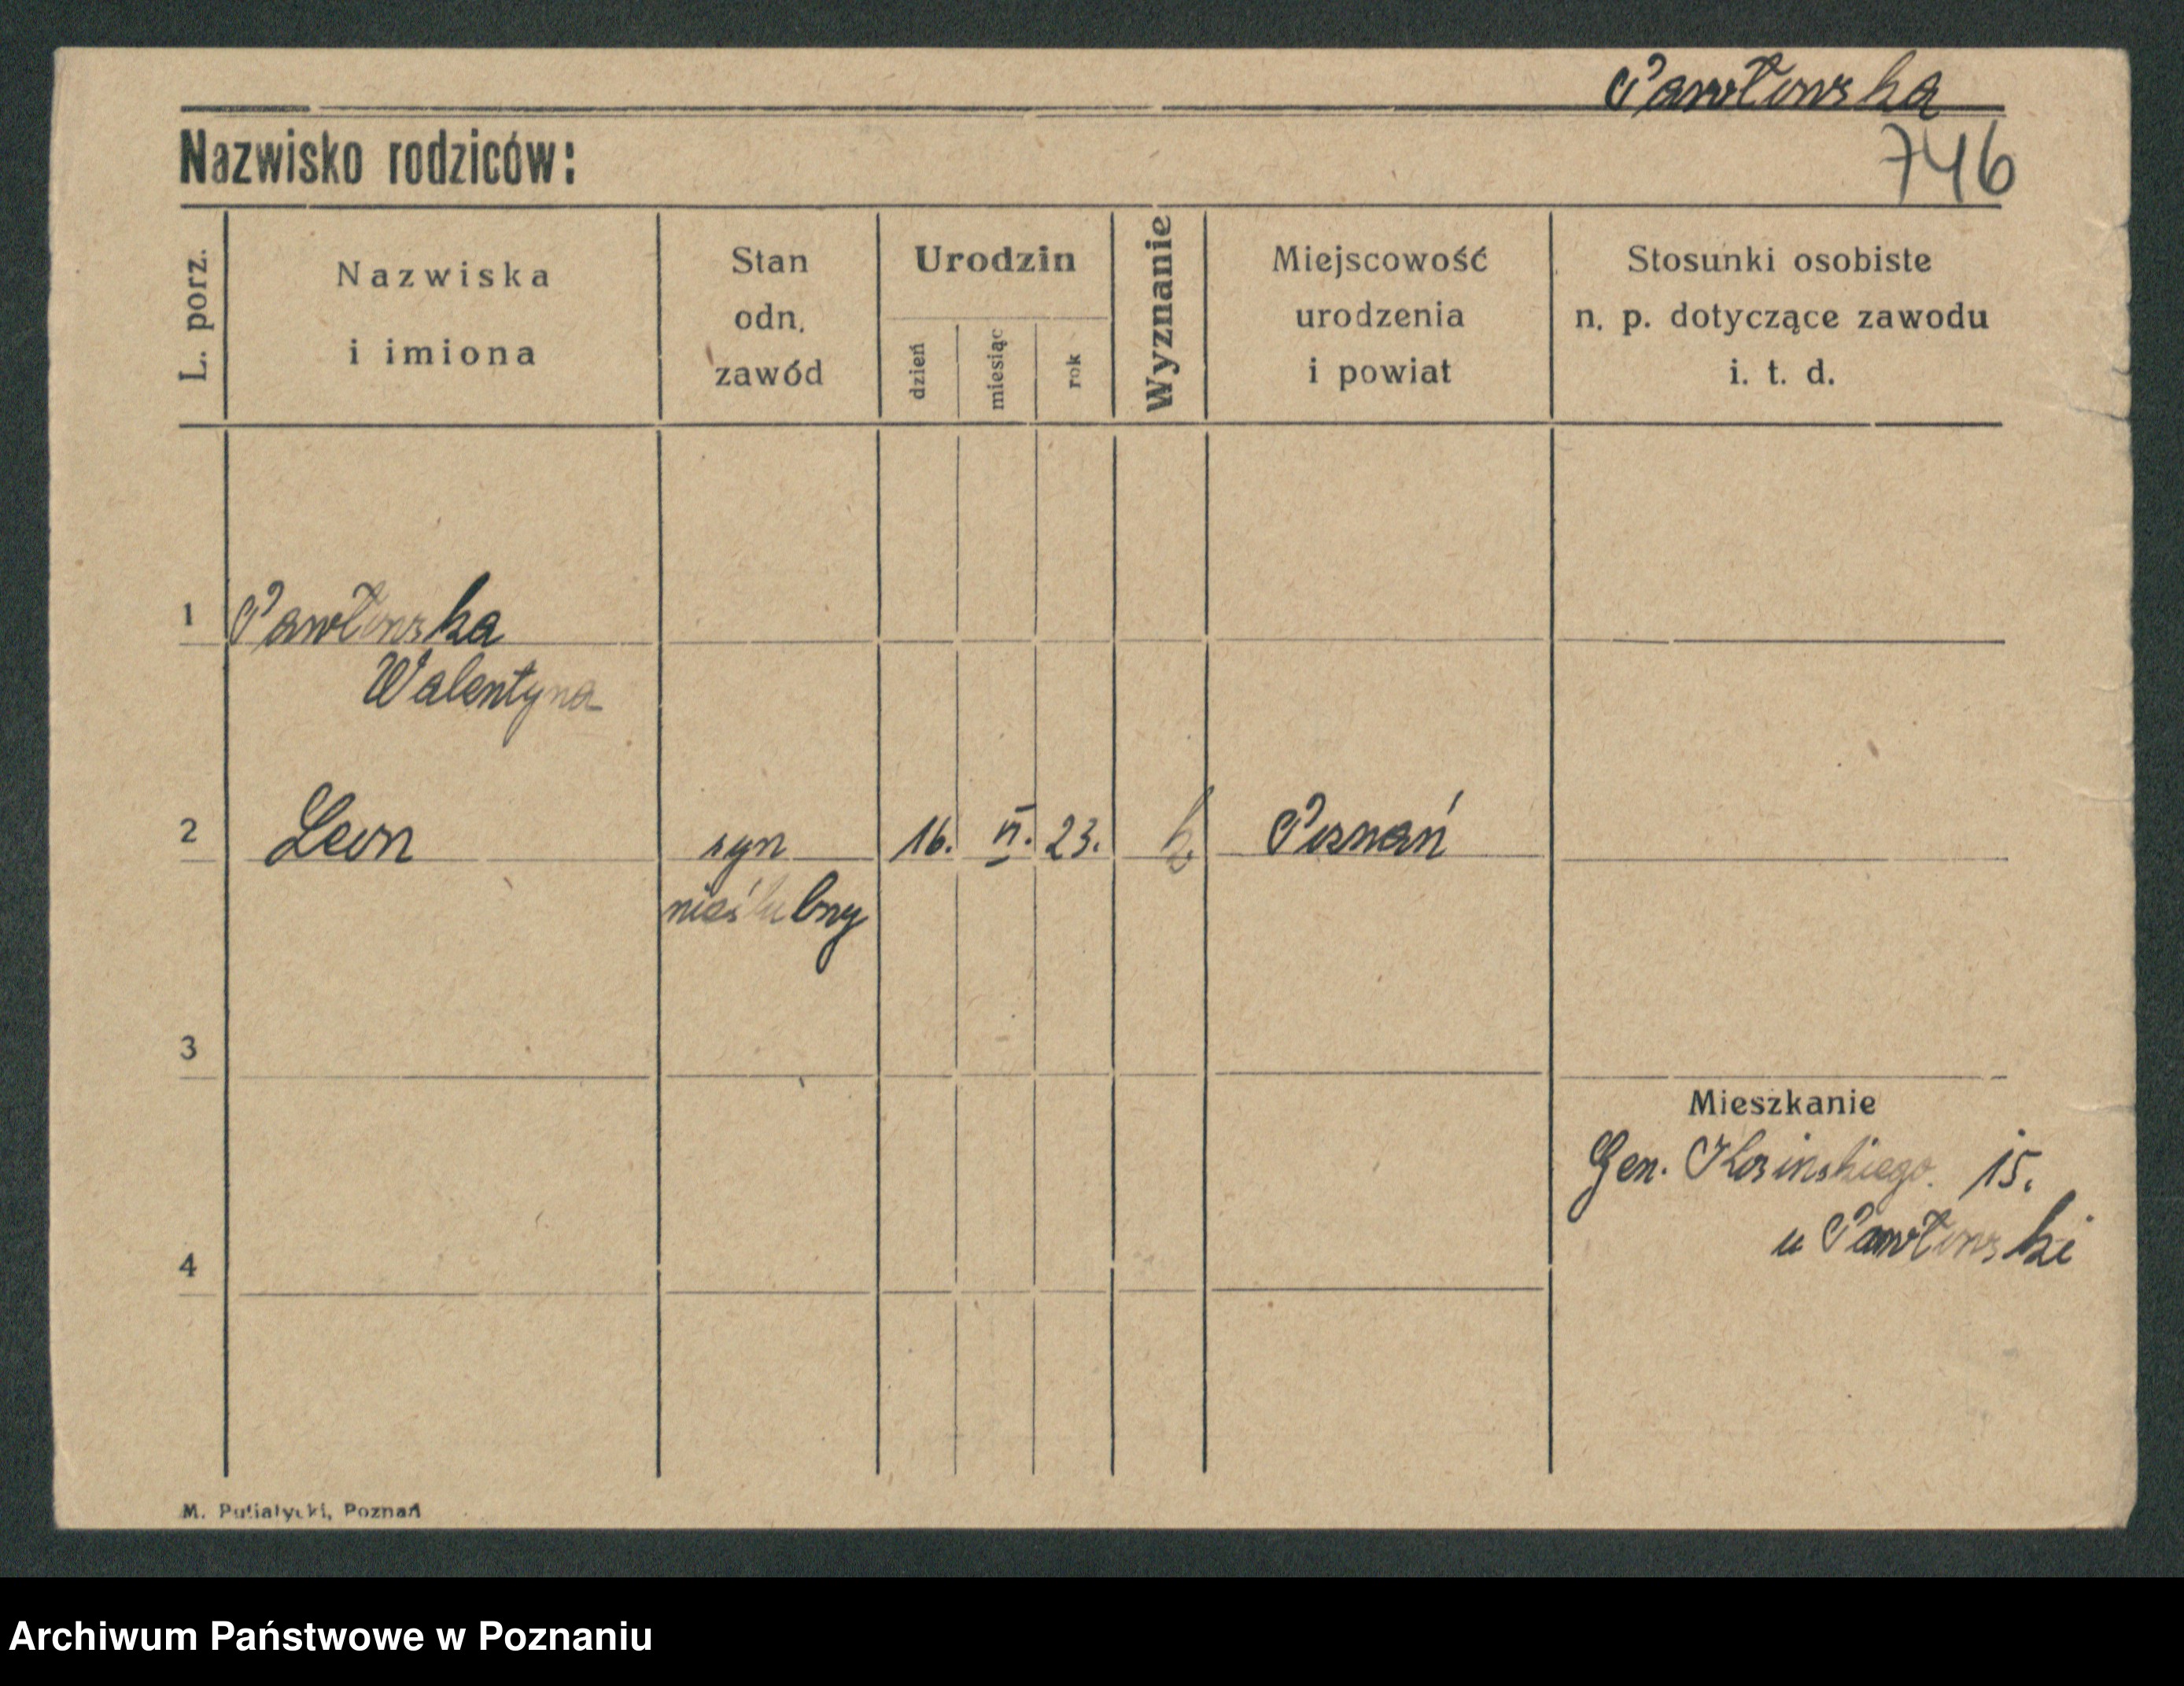 Pawłowska
Nazwisko rodziców:
746
L. porz.
Nazwiska
i imiona
Stan
odn.
zawód
Urodzin
dzień
miesiąc
rok
Wyznanie
Miejscowość
urodzenia
i powiat
Stosunki osobiste
n. p. dotyczące zawodu
i. t. d.
1 Pawłowska
Walentyna
2 Leon syn 16. VI. 23. k Poznań
nieślubny
3
Mieszkanie
Gen. Kosinskiego. 15.
u Pawłowski
4
M. Putiatycki, Poznań
Archiwum Państwowe w Poznaniu